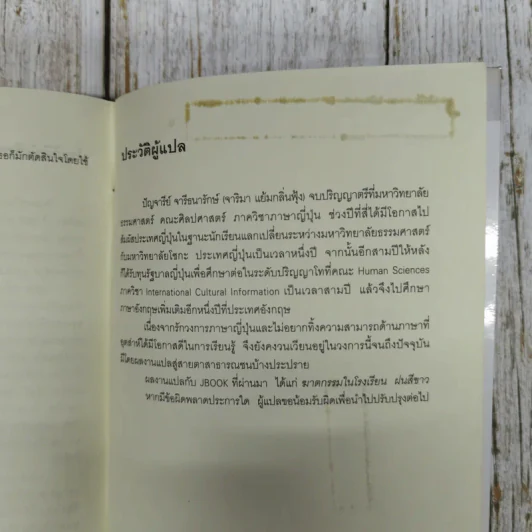 อก็มักตัดสินใจโดยใช้
ประวัติผู้แปล
ปัญจารีย์ จารีธนารักษ์ (จาริมา แย้มกลิ่นฟุ้ง) จบปริญญาตรีที่มหาวิทยาลัย
ธรรมศาสตร์ คณะศิลปศาสตร์ ภาควิชาภาษาญี่ปุ่น ช่วงปีที่สี่ได้มีโอกาสไป
สัมผัสประเทศญี่ปุ่นในฐานะนักเรียนแลกเปลี่ยนระหว่างมหาวิทยาลัยธรรมศาสตร์
กับมหาวิทยาลัยโซกะ ประเทศญี่ปุ่นเป็นเวลาหนึ่งปี จากนั้นอีกสามปีให้หลัง
ก็ได้รับทุนรัฐบาลญี่ปุ่นเพื่อศึกษาต่อในระดับปริญญาโทที่คณะ Human Sciences
ภาควิชา International Cultural Information เป็นเวลาสามปี แล้วจึงไปศึกษา
ภาษาอังกฤษเพิ่มเติมอีกหนึ่งปีที่ประเทศอังกฤษ
เนื่องจากรักวงการภาษาญี่ปุ่นและไม่อยากทิ้งความสามารถด้านภาษาที่
อุตส่าห์ได้มีโอกาสดีในการเรียนรู้ จึงยังคงวนเวียนอยู่ในวงการนี้จนถึงปัจจุบัน
มีโดยผลงานแปลสู่สายตาสาธารณชนบ้างประปราย
ผลงานแปลกับ JBOOK ที่ผ่านมา ได้แก่ ฆาตกรรมในโรงเรียน ฝนสีขาว
หากมีข้อผิดพลาดประการใด ผู้แปลขอน้อมรับผิดเพื่อนำไปปรับปรุงต่อไป